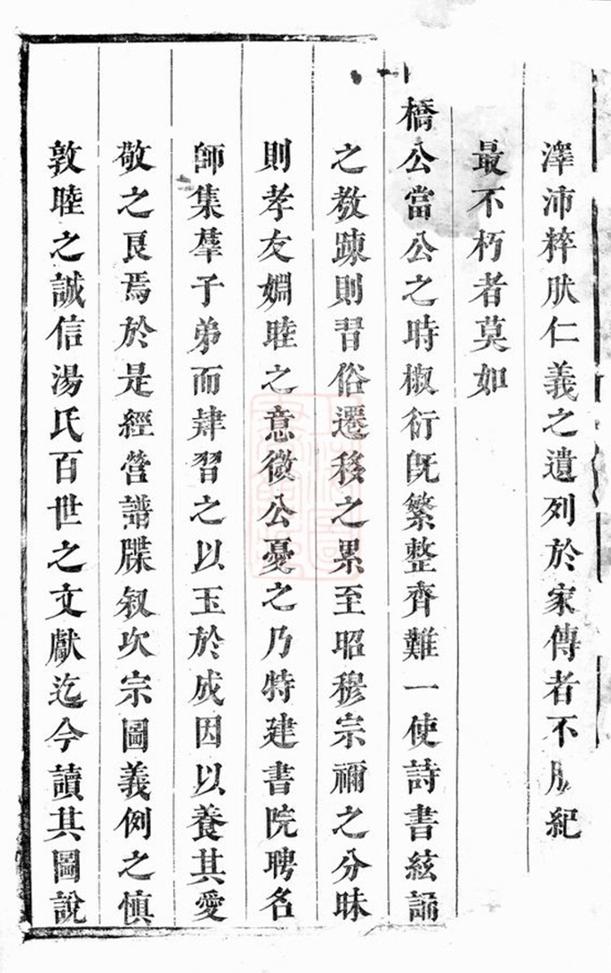 澤沛粹肰仁義之遺列於家傳者不勝紀
最不朽者莫如
橋公當公之時椒衍旣繁整齊難一使詩書絃誦
之教踈則習俗遷移之累至昭穆宗禰之分昧
則孝友婣睦之意微公憂之乃特建書院聘名
師集羣子弟而肄習之以玉於成因以養其愛
敬之良焉於是經營譜牒叙次宗圖義例之慎
敦睦之誠信湯氏百世之文獻迄今讀其圖說